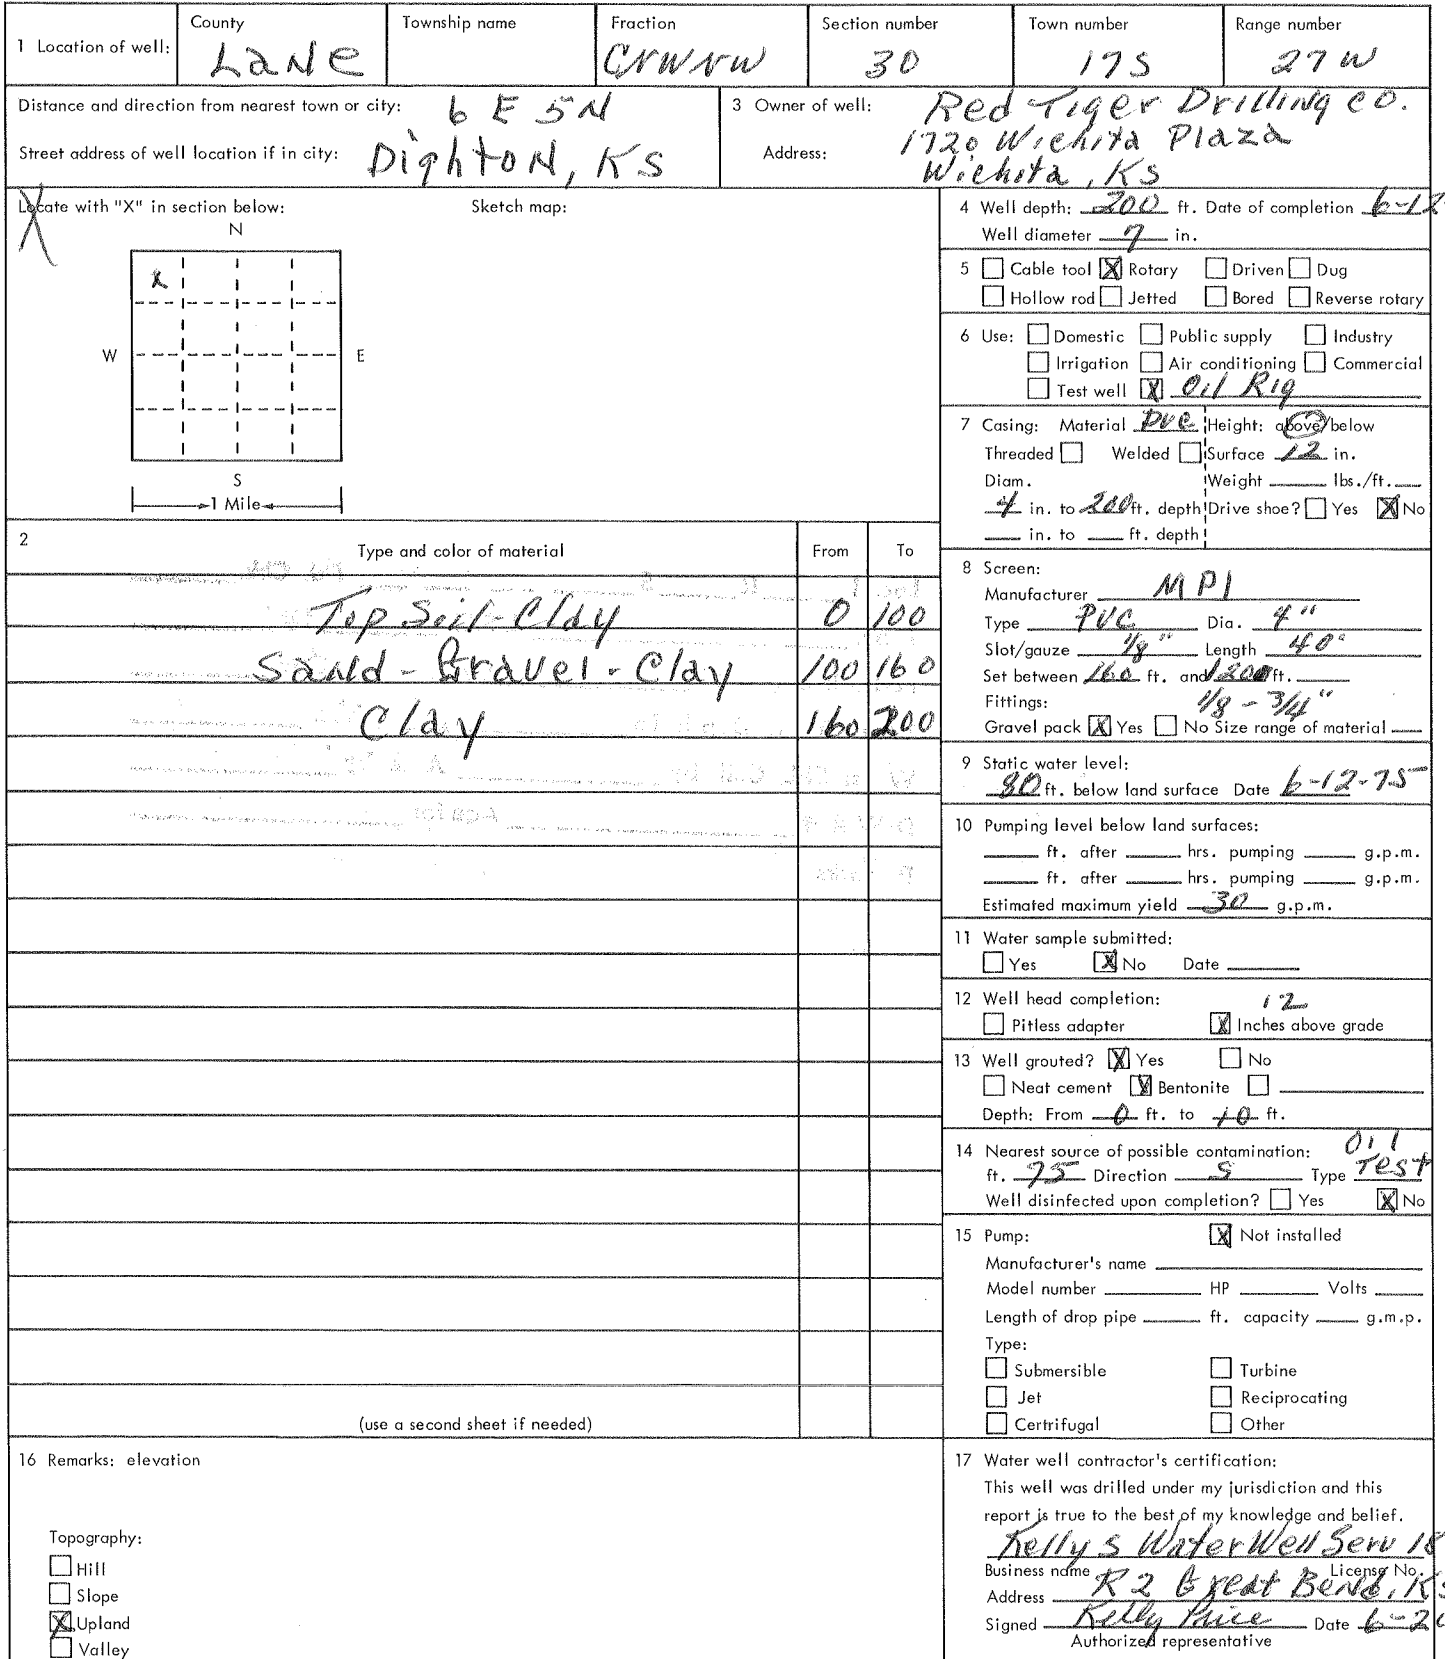 1 Location of well:
County
Lane
Township name
Fraction
CNWNW
Section number
30
Town number
17S
Range number
27W
Distance and direction from nearest town or city: 6 E 5N
Street address of well location if in city: Dighton, KS
3 Owner of well: Red Tiger Drilling Co.
Address: 1720 Wichita Plaza
Wichita, KS
Locate with "X" in section below:
X
Sketch map:
N
x
W
E
S
1 Mile
2
Type and color of material
From
To
Top Soil - Clay 0 100
Sand - Gravel - Clay 100 160
Clay 160 200
(use a second sheet if needed)
4 Well depth: 200 ft. Date of completion 6-12
Well diameter 7 in.
5 Cable tool X Rotary Driven Dug
Hollow rod Jetted Bored Reverse rotary
6 Use: Domestic Public supply Industry
Irrigation Air conditioning Commercial
Test well X Oil Rig
7 Casing: Material PVC Height: above/below
Threaded Welded Surface 12 in.
Diam. Weight lbs./ft.
4 in. to 200 ft. depth Drive shoe? Yes X No
in. to ft. depth
8 Screen:
Manufacturer MPI
Type PVC Dia. 4"
Slot/gauze 1/8" Length 40'
Set between 160 ft. and 200 ft.
Fittings: 1/8 - 3/4"
Gravel pack X Yes No Size range of material
9 Static water level:
80 ft. below land surface Date 6-12-75
10 Pumping level below land surfaces:
ft. after hrs. pumping g.p.m.
ft. after hrs. pumping g.p.m.
Estimated maximum yield 30 g.p.m.
11 Water sample submitted:
Yes X No Date
12 Well head completion: 12
Pitless adapter X Inches above grade
13 Well grouted? X Yes No
Neat cement X Bentonite
Depth: From 0 ft. to 10 ft.
14 Nearest source of possible contamination: Oil
ft. 75 Direction S Type Test
Well disinfected upon completion? Yes X No
15 Pump: X Not installed
Manufacturer's name
Model number HP Volts
Length of drop pipe ft. capacity g.m.p.
Type:
Submersible Turbine
Jet Reciprocating
Certrifugal Other
16 Remarks: elevation
Topography:
Hill
Slope
X Upland
Valley
17 Water well contractor's certification:
This well was drilled under my jurisdiction and this
report is true to the best of my knowledge and belief.
Kellys Water Well Serv 18
Business name License No.
Address R 2 Great Bend, KS
Signed Kelly Price Date 6-20
Authorized representative